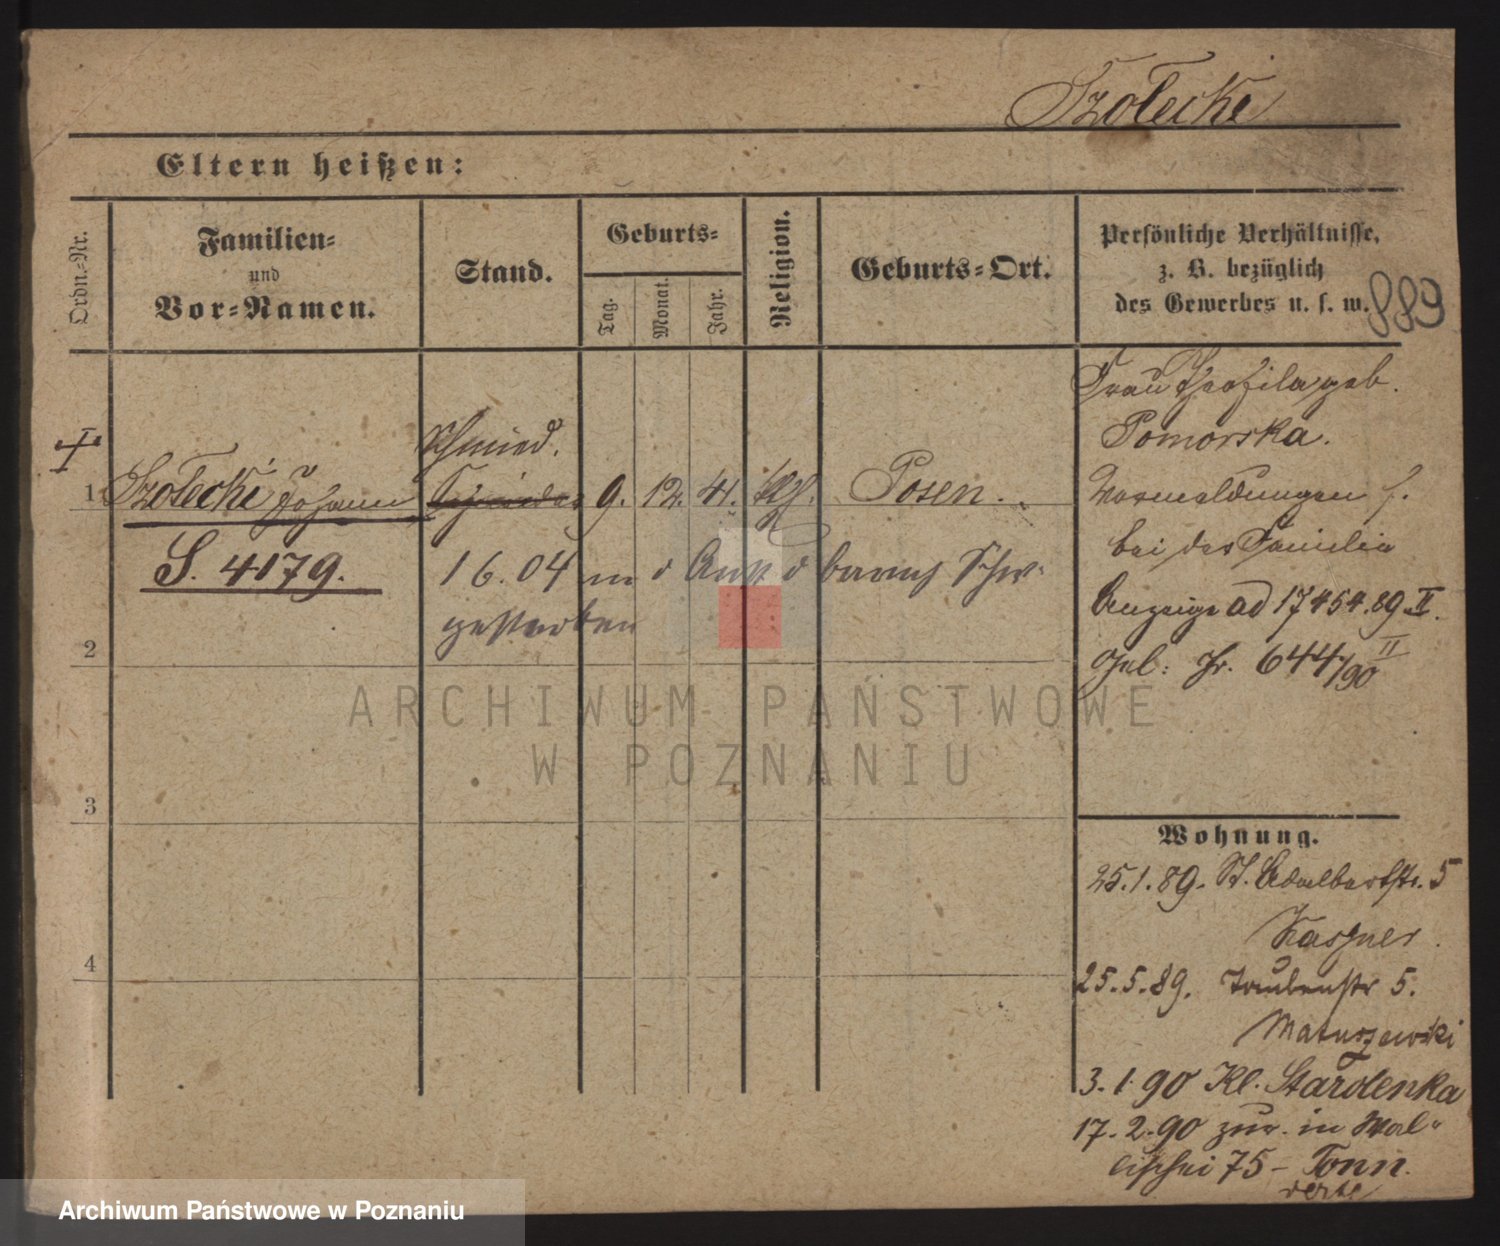 Szołecki
Eltern heißen:
Ordn.-Nr.
Familien-
und
Vor-Namen.
Stand.
Geburts-
Tag.
Monat.
Jahr.
Religion.
Geburts-Ort.
Persönliche Verhältnisse,
z. B. bezüglich
des Gewerbes u. s. w.
889
Frau Theofila geb.
Pomorska.
Vormeldungen s.
bei der Familie
Anzeige ad 17454.89 II.
Gel: Fr. 644/90 II
Schmied.
1 Szołecki Johann 9. 12. 41. kth. Posen.
S. 4179.
16.04 in d Anst d barmh Schw.
gestorben
2
3
4
Wohnung.
25.1.89. St. Adalbertstr. 5
Kassner.
25.5.89. Taubenstr 5.
Matuszewski
3.1.90 Kl. Starolenka
17.2.90 zur. in Wal-
lischei 75 - Tonn
ARCHIWUM PAŃSTWOWE
W POZNANIU
Archiwum Państwowe w Poznaniu